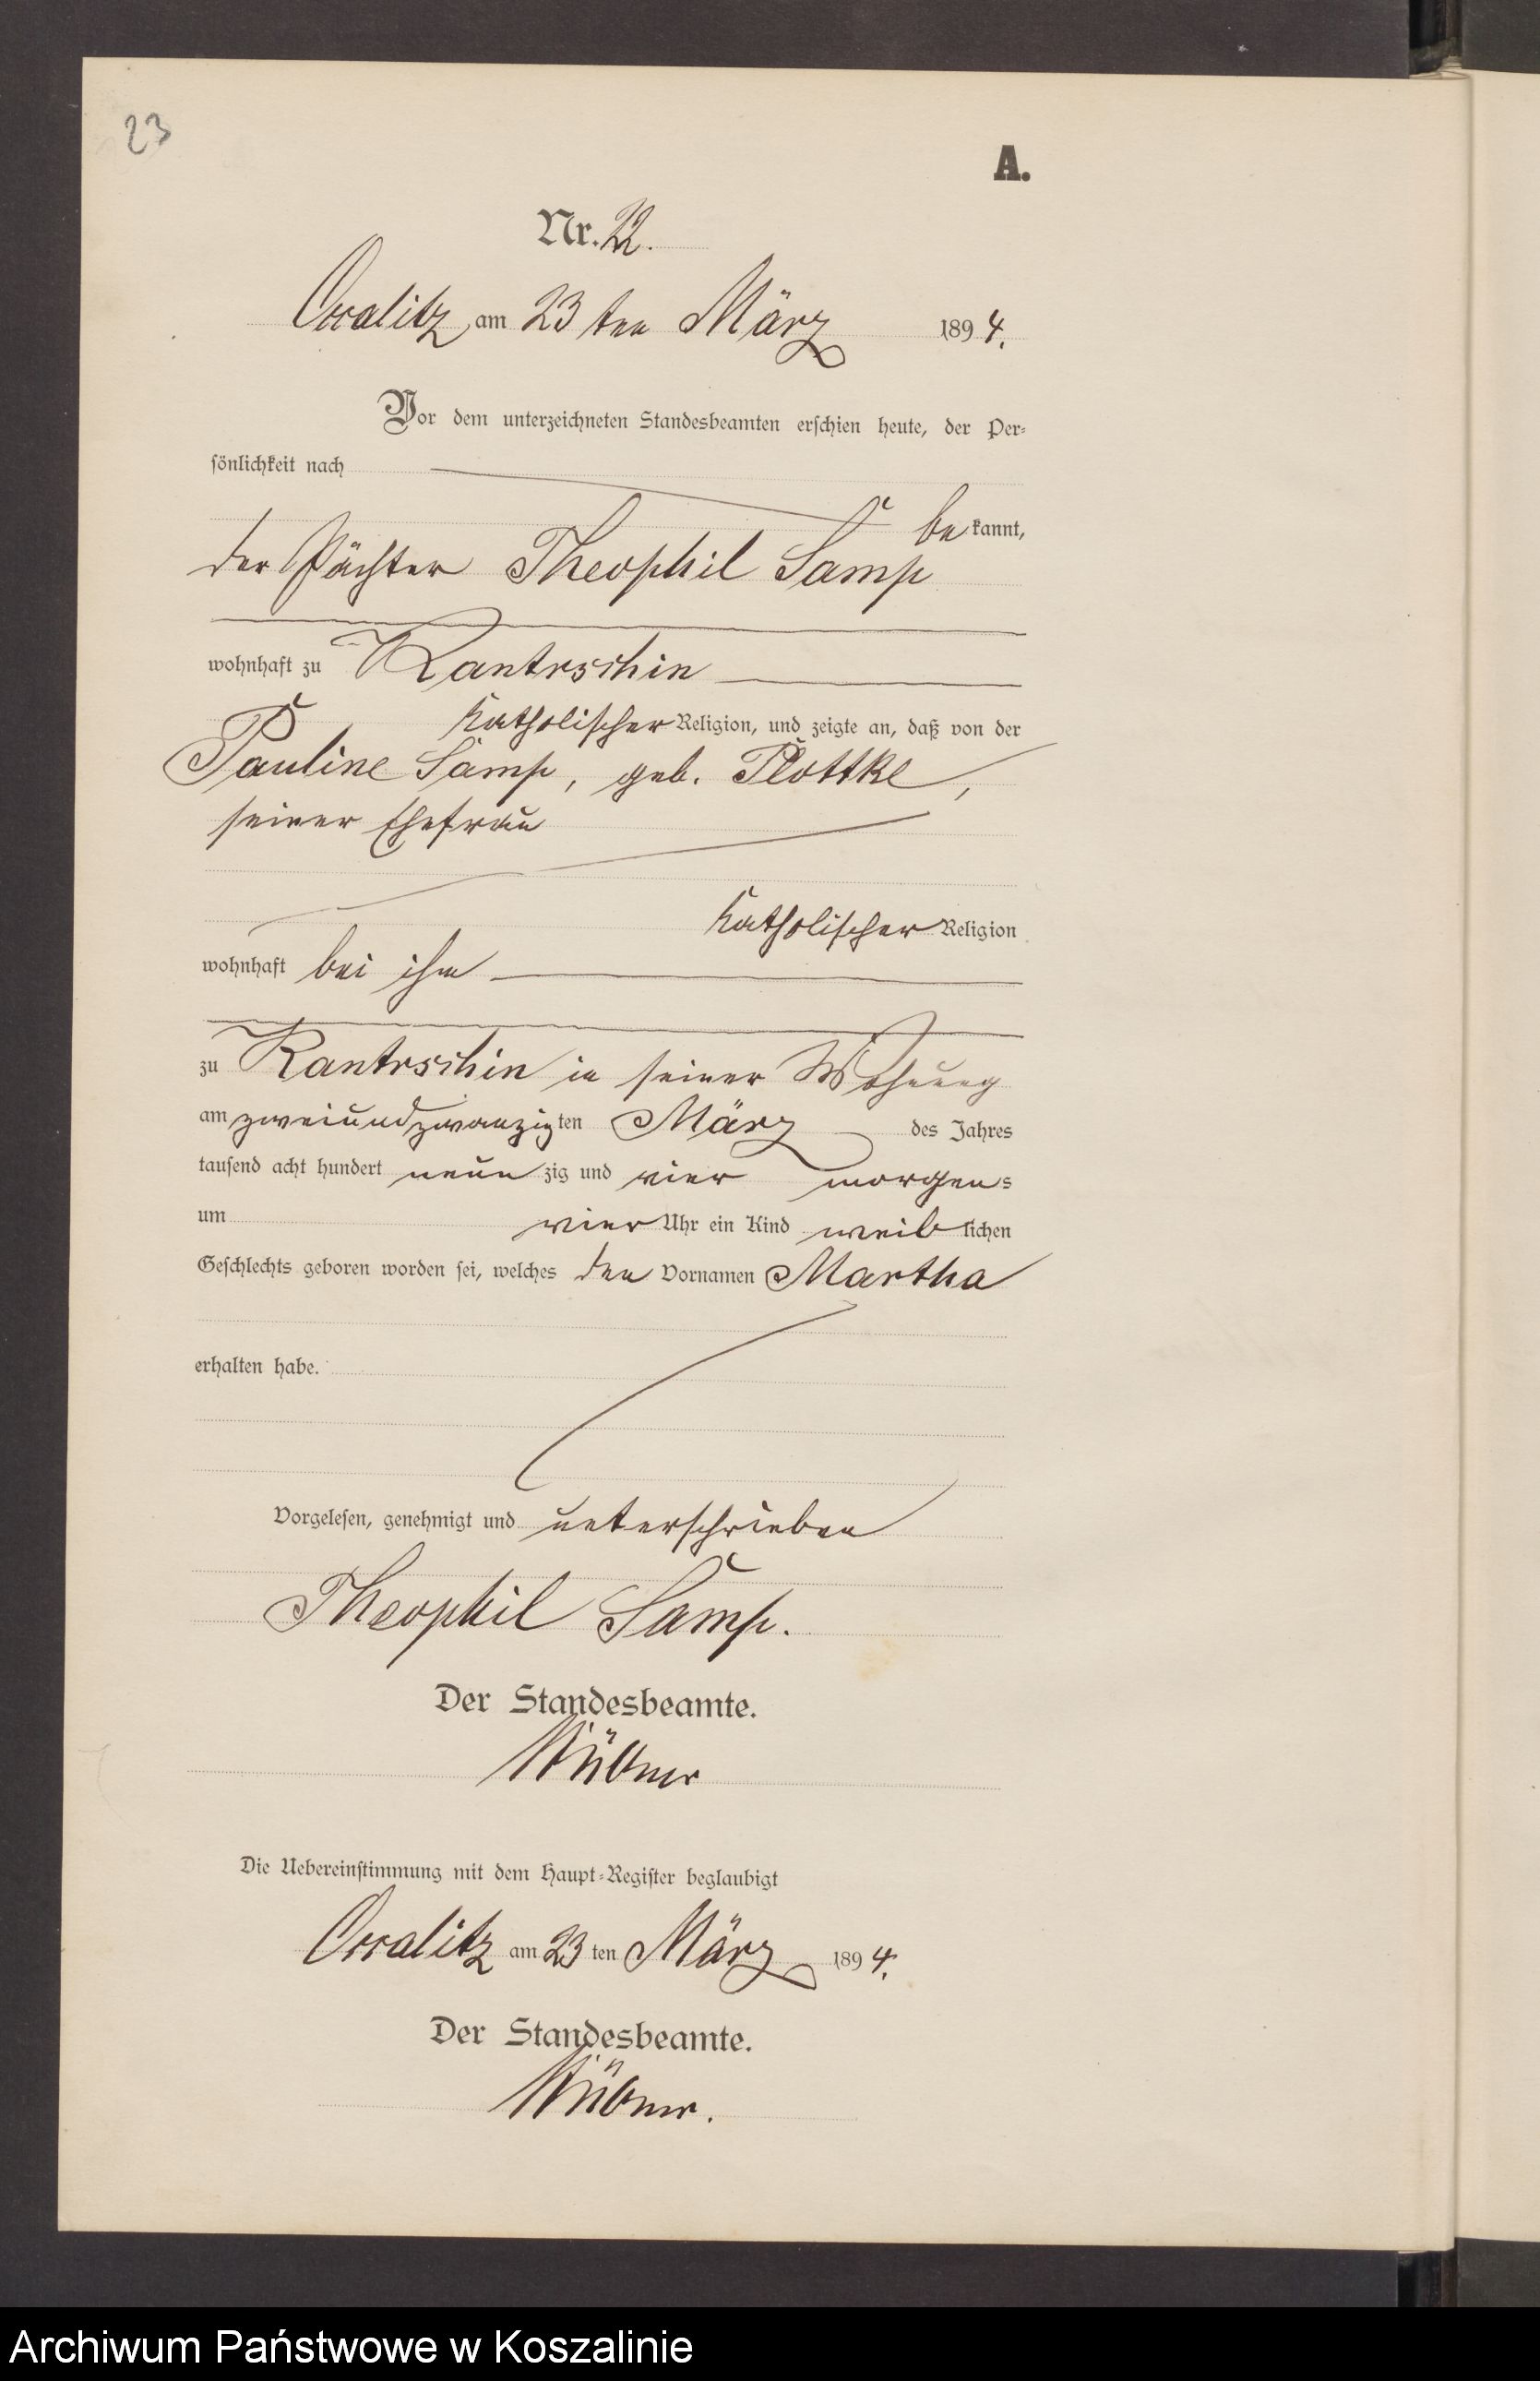 23
A.
Nr. 22.
Occalitz am 23 ten März 1894.
Vor dem unterzeichneten Standesbeamten erschien heute, der Per-
sönlichkeit nach
bekannt,
der Pächter Theophil Samp
wohnhaft zu Kantrschin
katholischer Religion, und zeigte an, daß von der
Pauline Samp, geb. Plottke,
seiner Ehefrau
katholischer Religion
wohnhaft bei ihm
zu Kantrschin in seiner Wohnung
am zweiundzwanzigten März des Jahres
tausend acht hundert neunzig und vier morgens
um vier Uhr ein Kind weiblichen
Geschlechts geboren worden sei, welches den Vornamen Martha
erhalten habe.
Vorgelesen, genehmigt und unterschrieben
Theophil Samp.
Der Standesbeamte.
Die Uebereinstimmung mit dem Haupt-Register beglaubigt
Occalitz am 23 ten März 1894.
Der Standesbeamte.
Archiwum Państwowe w Koszalinie